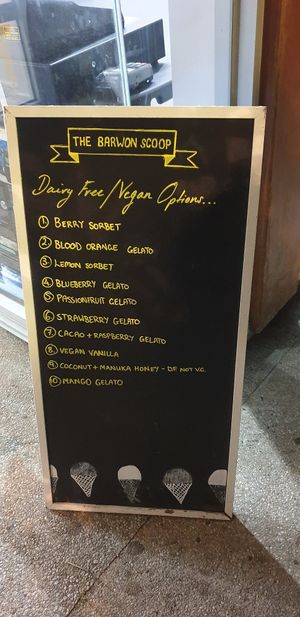 THE BARWON SCOOP
Dairy Free/Vegan Options...
1 BERRY SORBET
2 BLOOD ORANGE GELATO
3 LEMON SORBET
4 BLUEBERRY GELATO
5 PASSIONFRUIT GELATO
6 STRAWBERRY GELATO
7 CACAO + RASPBERRY GELATO
8 VEGAN VANILLA
9 COCONUT + MANUKA HONEY - DF NOT V.G.
10 MANGO GELATO